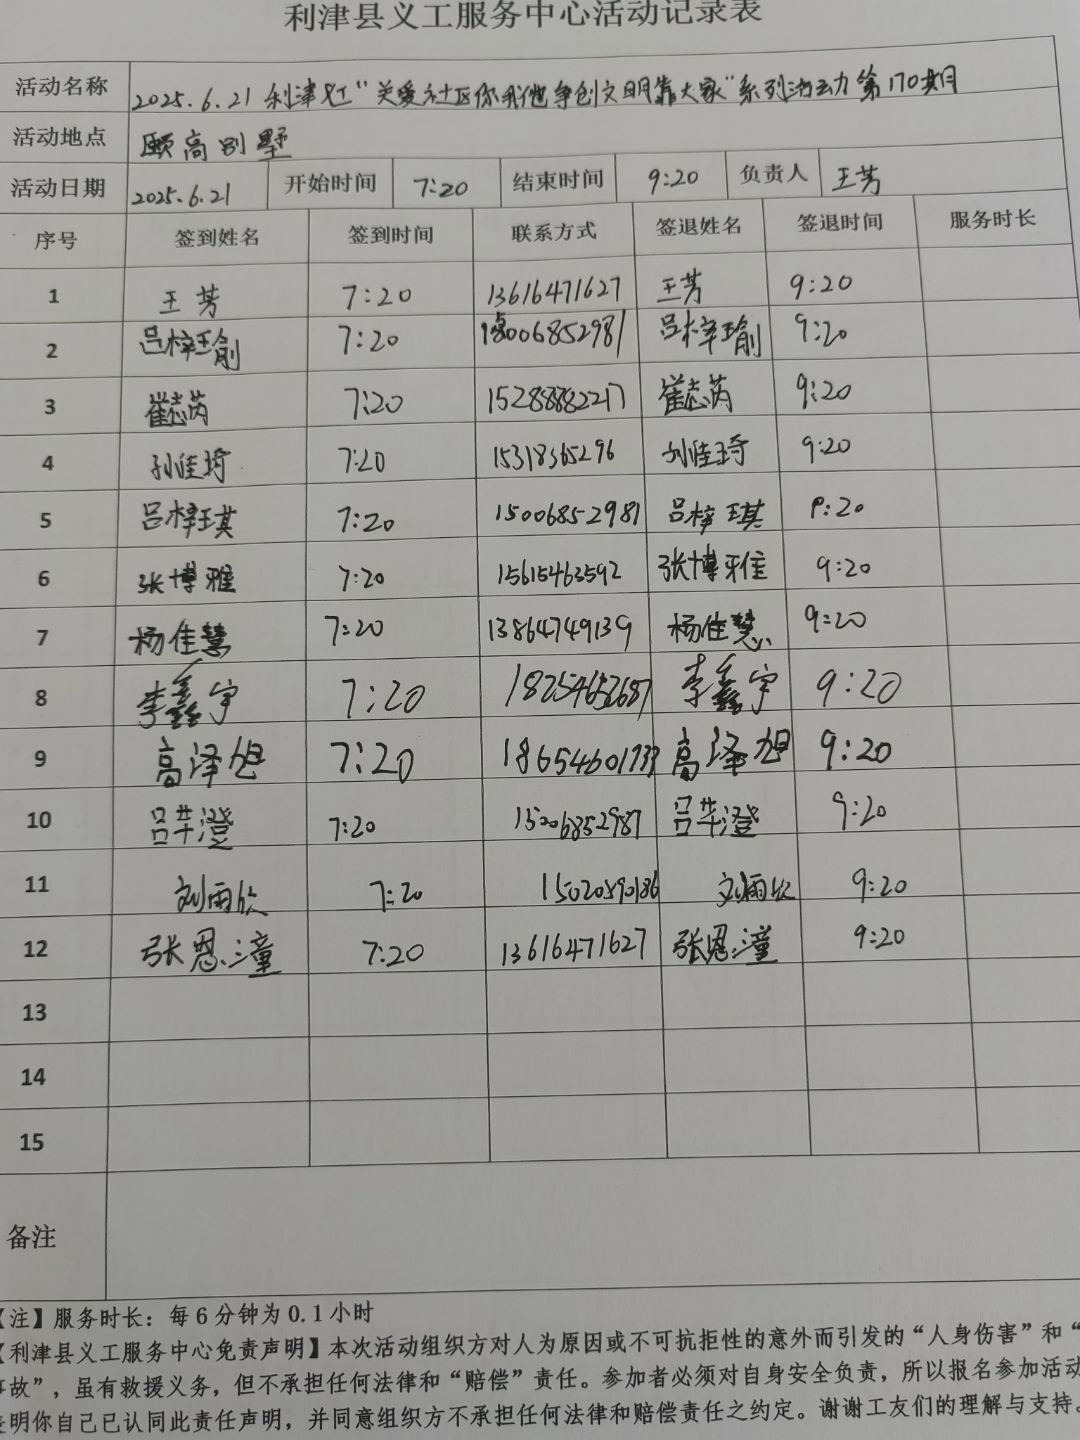 利津县义工服务中心活动记录表
活动名称 2025.6.21 利津义工“关爱社区你我他争创文明靠大家”系列活动第170期
活动地点 颐高别墅
活动日期 2025.6.21 开始时间 7:20 结束时间 9:20 负责人 王芳
序号 签到姓名 签到时间 联系方式 签退姓名 签退时间 服务时长
1 王芳 7:20 13616471627 王芳 9:20
2 吕梓瑜 7:20 15006852981 吕梓瑜 9:20
3 崔志芮 7:20 15288882217 崔志芮 9:20
4 孙佳琦 7:20 15318365296 孙佳琦 9:20
5 吕梓琪 7:20 15006852981 吕梓琪 9:20
6 张博雅 7:20 15615463592 张博雅 9:20
7 杨佳慧 7:20 13864749139 杨佳慧 9:20
8 李鑫宇 7:20 18254652687 李鑫宇 9:20
9 高泽旭 7:20 18654601733 高泽旭 9:20
10 吕芊澄 7:20 15006852981 吕芊澄 9:20
11 刘雨欣 7:20 9:20
12 张恩潼 7:20 13616471627 张恩潼 9:20
13
14
15
备注
【注】服务时长：每6分钟为0.1小时
【利津县义工服务中心免责声明】本次活动组织方对人为原因或不可抗拒性的意外而引发的“人身伤害”和“
事故”，虽有救援义务，但不承担任何法律和“赔偿”责任。参加者必须对自身安全负责，所以报名参加活动
表明你自己已认同此责任声明，并同意组织方不承担任何法律和赔偿责任之约定。谢谢工友们的理解与支持。